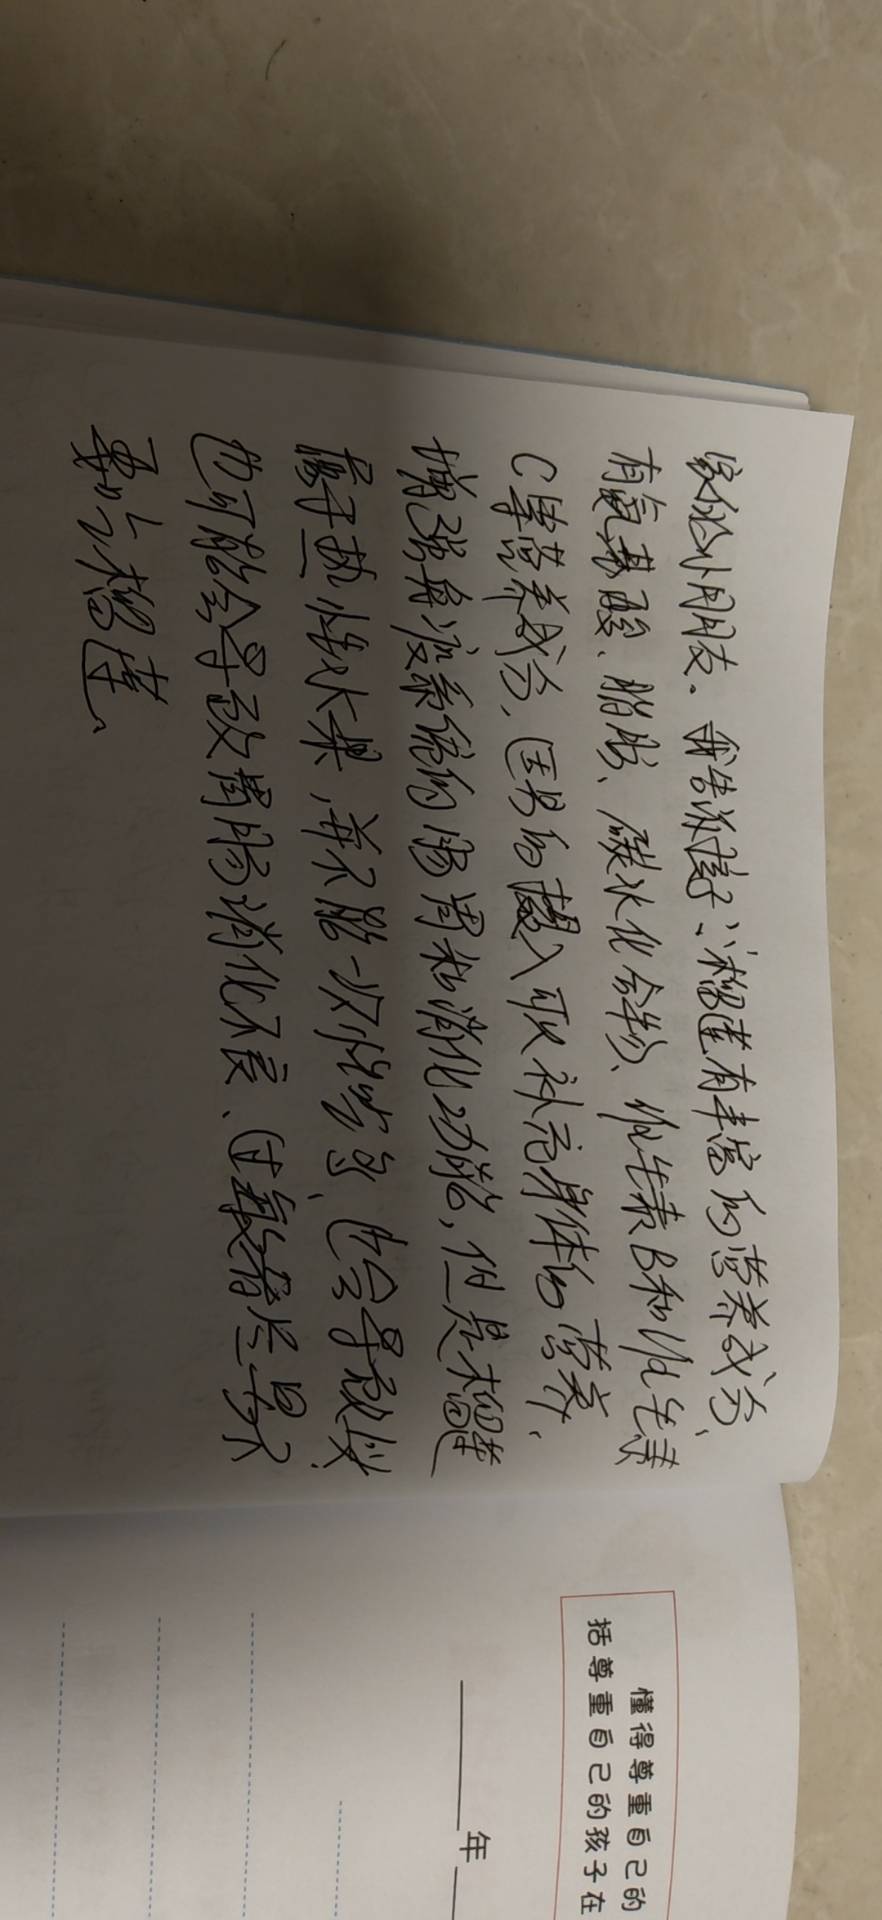 小朋友。我告诉孩子：榴莲有丰富的营养成分、
有氨基酸、脂肪、碳水化合物、维生素B和维生素
C等营养成分，适量的摄入可以补充身体的营养、
增强免疫系统的肠胃和消化功能，但是榴莲
属于热性水果，并不能一次性吃多、也会导致
也可能会导致胃肠消化不良、过敏者尽量不
要吃榴莲、
懂得尊重自己的
括尊重自己的孩子在
年